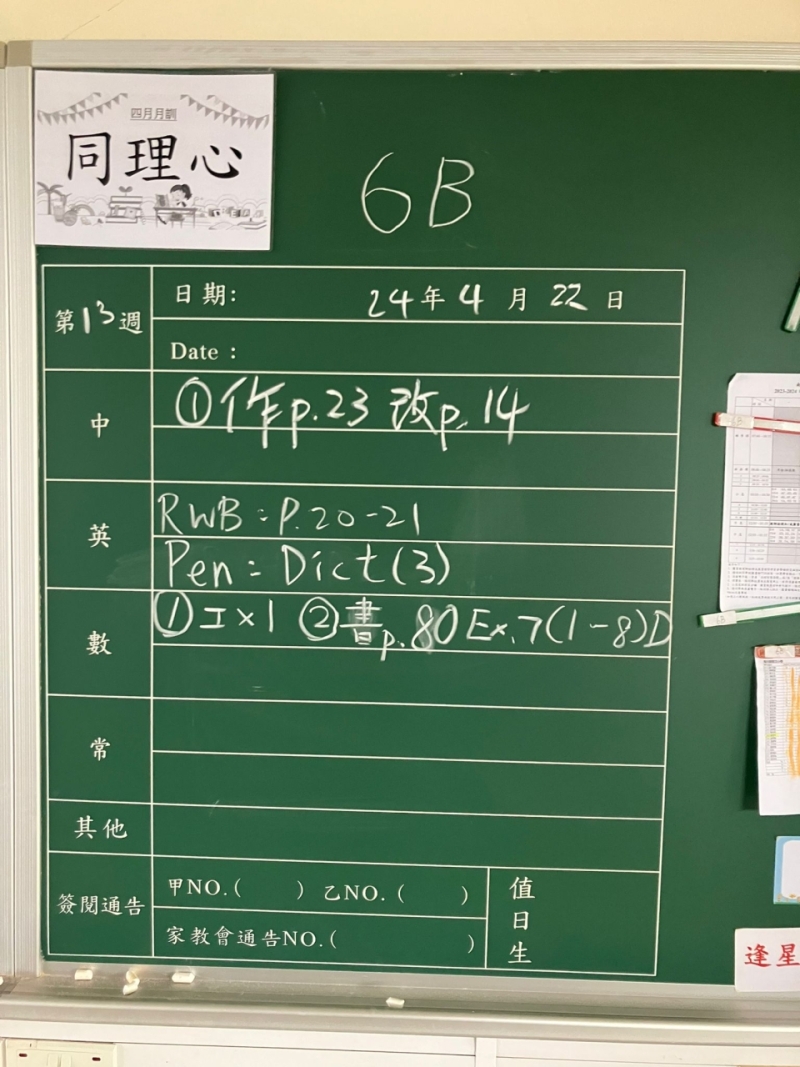 四月月訓
同理心
6B
第13週
日期: 24年4月22日
Date :
中
①作p.23 改p.14
英
RWB:P.20-21
Pen = Dict(3)
數
①工×1 ②書p.80 Ex.7(1-8)D
常
其他
簽閱通告
甲NO.( ) 乙NO.( )
家教會通告NO.( )
值日生
逢星